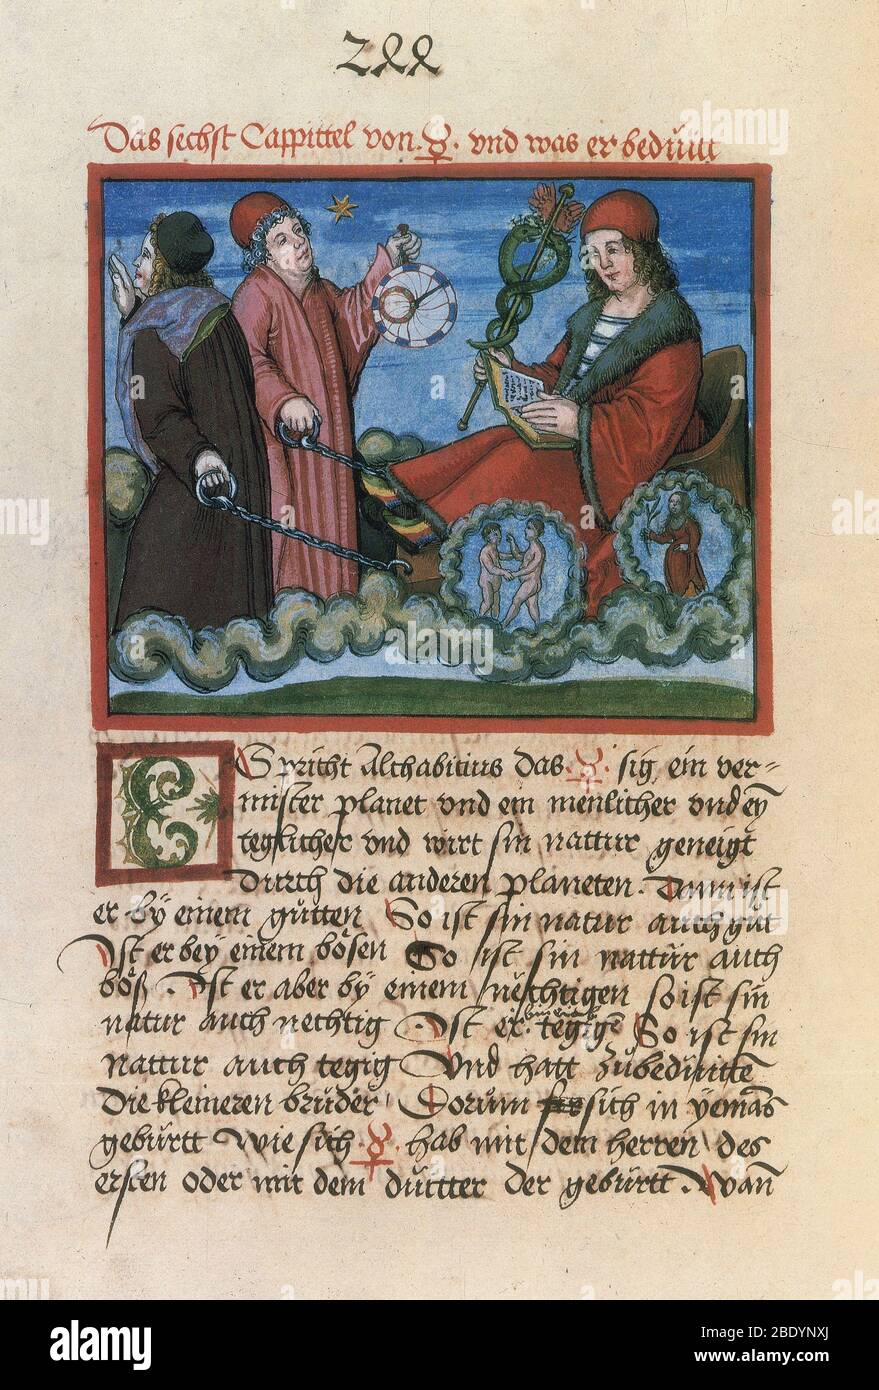 2ll
Das sechst Cappittel von · ☿ · vnd was er bedütt
ES spricht Alchabitius das · ☿ · sig ein ver=
mister planet vnd ein menlicher vnd eÿ
teglicher vnd wirt sin nattur geneigt
durch die anderen planeten · Dann ist
er bÿ einem gůtten So ist sin natur auch gůt
Ist er beÿ einem bösen So ist sin nattür auch
böß · Ist er aber bÿ einem nechtigen so ist sin
natur auch nechtig · Ist er teg So ist sin
nattur auch tegig Vnd hatt zůbedütten
die kleineren brüder Dorum sich in yemās
gebürtt wie sich · ☿ · hab mit dem herren des
ersten oder mit dem dutter der gebürtt · wañ
alamy
Image ID: 2BDYNXJ
www.alamy.com